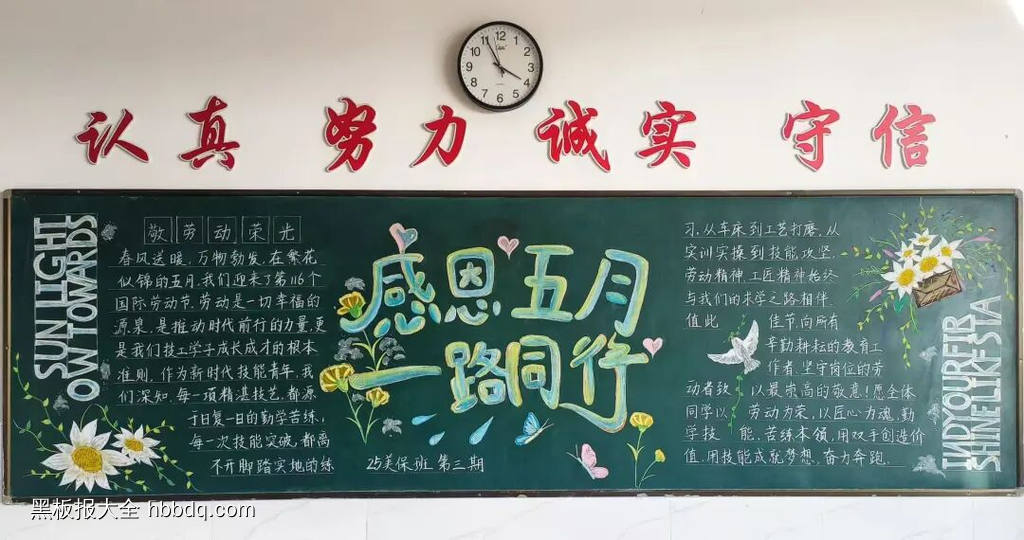 认真 努力 诚实 守信
12
1
2
3
4
5
6
7
8
9
10
11
SUNLIGHT
OWTOWARDS
敬劳动荣光
春风送暖,万物勃发,在繁花
似锦的五月,我们迎来了第116个
国际劳动节,劳动是一切幸福的
源泉,是推动时代前行的力量,更
是我们技工学子成长成才的根本
准则,作为新时代技能青年,我
们深知,每一项精湛技艺,都源
于日复一日的勤学苦练,
每一次技能突破,都离
不开脚踏实地的练
感恩五月
一路同行
25美保班 第三期
习,从车床到工艺打磨,从
实训实操到技能攻坚,
劳动精神,工匠精神始终
与我们的求学之路相伴
值此 佳节,向所有
辛勤耕耘的教育工
作者,坚守岗位的劳
动者致 以最崇高的敬意!愿全体
同学以 劳动为荣,以匠心为魂,勤
学技 能,苦练本领,用双手创造价
值,用技能成就梦想,奋力奔跑.
INDYOURFIR
SHINELIKESTA
黑板报大全 hbbdq.com